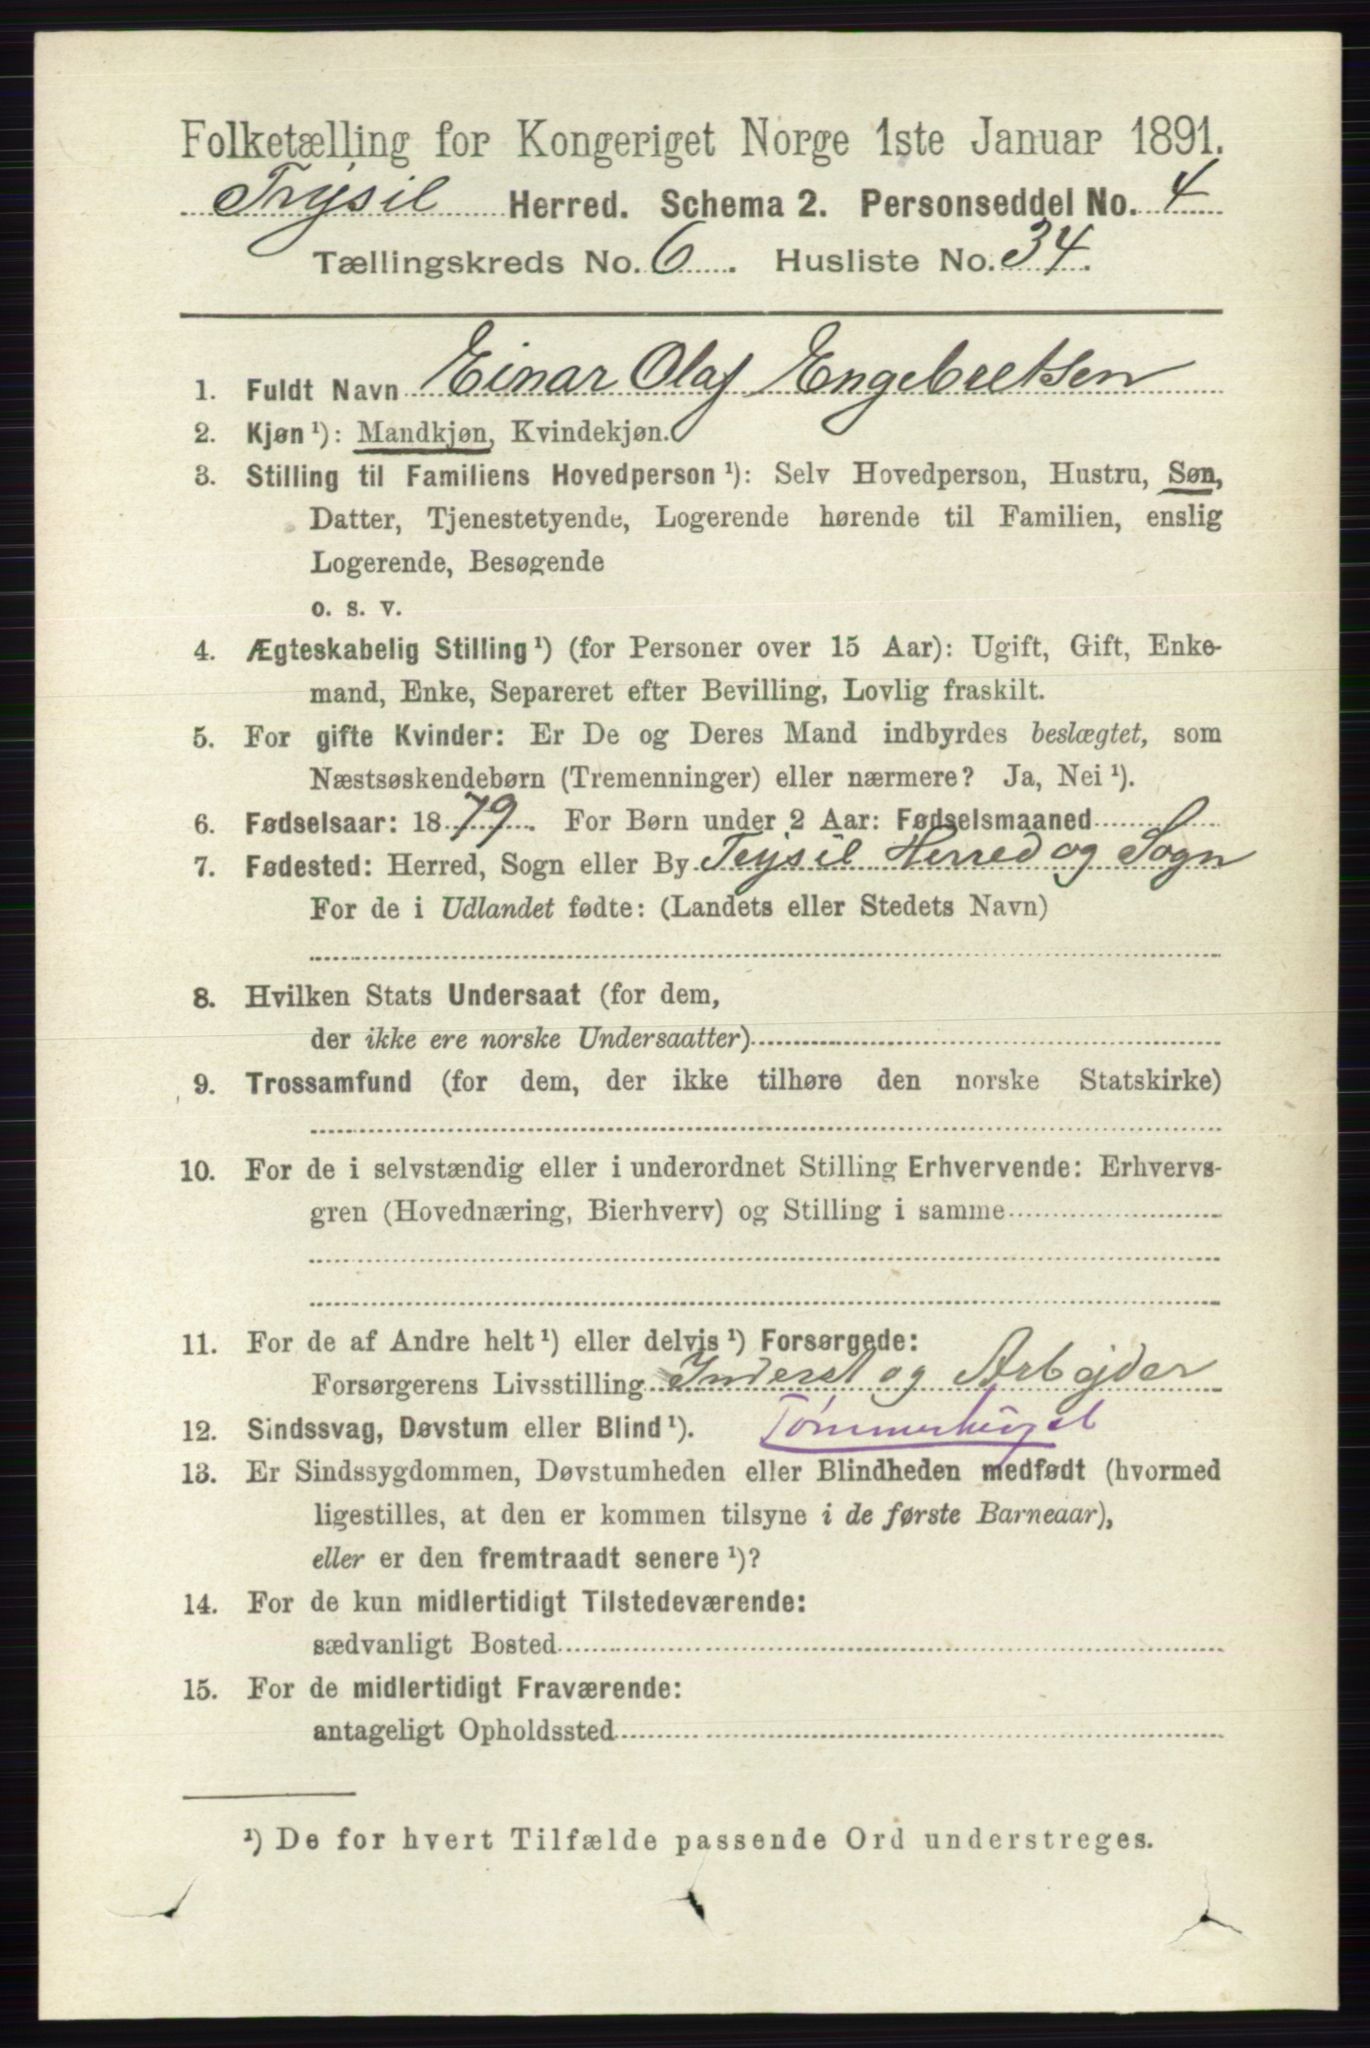 Folketælling for Kongeriget Norge 1ste Januar 1891.
Trysil Herred. Schema 2. Personseddel No. 4
Tællingskreds No. 6. Husliste No. 34.
1. Fuldt Navn Einar Olaf Engebretsen
2. Kjøn ¹): Mandkjøn, Kvindekjøn.
3. Stilling til Familiens Hovedperson ¹): Selv Hovedperson, Hustru, Søn,
Datter, Tjenestetyende, Logerende hørende til Familien, enslig
Logerende, Besøgende
o. s. v.
4. Ægteskabelig Stilling ¹) (for Personer over 15 Aar): Ugift, Gift, Enke-
mand, Enke, Separeret efter Bevilling, Lovlig fraskilt.
5. For gifte Kvinder: Er De og Deres Mand indbyrdes beslægtet, som
Næstsøskendebørn (Tremenninger) eller nærmere? Ja, Nei ¹).
6. Fødselsaar: 1879. For Børn under 2 Aar: Fødselsmaaned
7. Fødested: Herred, Sogn eller By Trysil Herred og Sogn
For de i Udlandet fødte: (Landets eller Stedets Navn)
8. Hvilken Stats Undersaat (for dem,
der ikke ere norske Undersaatter)
9. Trossamfund (for dem, der ikke tilhøre den norske Statskirke)
10. For de i selvstændig eller i underordnet Stilling Erhvervende: Erhvervs-
gren (Hovednæring, Bierhverv) og Stilling i samme
11. For de af Andre helt ¹) eller delvis ¹) Forsørgede:
Forsørgerens Livsstilling Inderst og Arbejder
12. Sindssvag, Døvstum eller Blind ¹). Tømmerhugst
13. Er Sindssygdommen, Døvstumheden eller Blindheden medfødt (hvormed
ligestilles, at den er kommen tilsyne i de første Barneaar),
eller er den fremtraadt senere ¹)?
14. For de kun midlertidigt Tilstedeværende:
sædvanligt Bosted
15. For de midlertidigt Fraværende:
antageligt Opholdssted
¹) De for hvert Tilfælde passende Ord understreges.